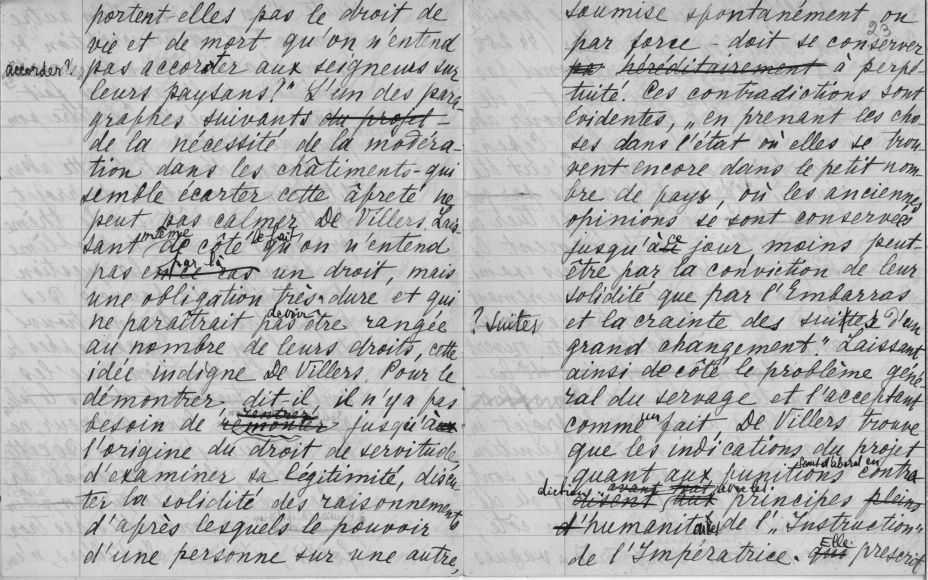 portent-elles pas le droit de
vie et de mort qu'on n'entend
accorder? pas accorder aux seigneurs sur
leurs paysans?" L'un des para-
graphes suivants du projet -
de la nécessité de la modéra-
tion dans les châtiments - qui
semble écarter cette âpreté ne
peut pas calmer De Villers. Lais-
même le fait
sant de côté qu'on n'entend
par là
pas un droit, mais
une obligation très dure et qui
devoir
ne paraîtrait pas être rangée
au nombre de leurs droits, cette
idée indigne De Villers. Pour le
démontrer, dit-il, il n'y a pas
rentrer
besoin de remonter jusqu'à
l'origine du droit de servitude,
d'examiner sa légitimité, discu-
ter la solidité des raisonnements
d'après lesquels le pouvoir
d'une personne sur une autre,
23
soumise spontanément ou
par force - doit se conserver
pa héréditairement à perpé-
tuité. Ces contradictions sont
évidentes, „en prenant les cho-
ses dans l'état où elles se trou-
vent encore dans le petit nom-
bre de pays, où les anciennes
opinions se sont conservées
jusqu'à ce jour moins peut-
être par la conviction de leur
solidité que par l'Embarras
? suites et la crainte des suites d'un
grand changement." Laissant
ainsi de côté le problème géné-
ral du servage et l'acceptant
un
comme fait. De Villers trouve
que les indications du projet
sont d'abord en
quant aux punitions contra
diction avec les
disent aux principes pleins
d'humanitaires de l'„Instruction"
Elle
de l'Impératrice. qui prescrit